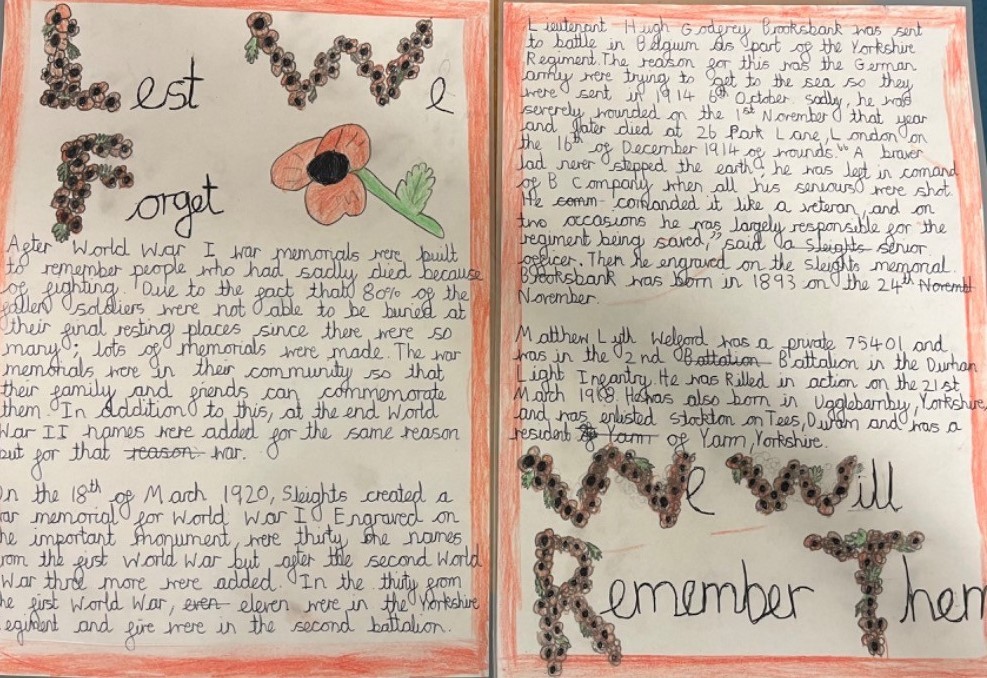 Lest We
Forget
After World War I war memorials were built
to remember people who had sadly died because
of fighting. Due to the fact that 80% of the
fallen soldiers were not able to be buried at
their final resting places since there were so
many; lots of memorials were made. The war
memorials were in their community so that
their family and friends can commemorate
them. In addition to this, at the end World
War II names were added for the same reason
but for that reason war.
On the 18th of March 1920, Sleights created a
war memorial for World War I. Engraved on
the important monument, were thirty one names
from the first World War but after the second World
War three more were added. In the thirty from
the first World War, even eleven were in the Yorkshire
regiment and five were in the second battalion.
Lieutenant Hugh Godfrey Brooksbank was sent
to battle in Belgium as part of the Yorkshire
Regiment. The reason for this was the German
army were trying to get to the sea so they
were sent in 1914 6th October. sadly, he was
severely wounded on the 1st November that year
and later died at 26 Park Lane, London on
the 16th of December 1914 of wounds. "A braver
lad never stepped the earth, he was left in comand
of B Company when all his seniours were shot.
He comm- comanded it like a veteran, and on
two occasions he was largely responsible for the
regiment being saved," said a Sleights senior
officer. Then he engraved on the sleights memorial.
Brooksbank was born in 1893 on the 24th Novemb
November.
Matthew Lyth Welford was a private 75401 and
was in the 2nd Battation Battalion in the Durham
Light Infantry. He was killed in action on the 21st
March 1918. He was also born in Ugglebarnby, Yorkshire,
and was enlisted stockton on Tees, Duram and was a
resident Yarm of Yarm, Yorkshire.
We Will
Remember Them